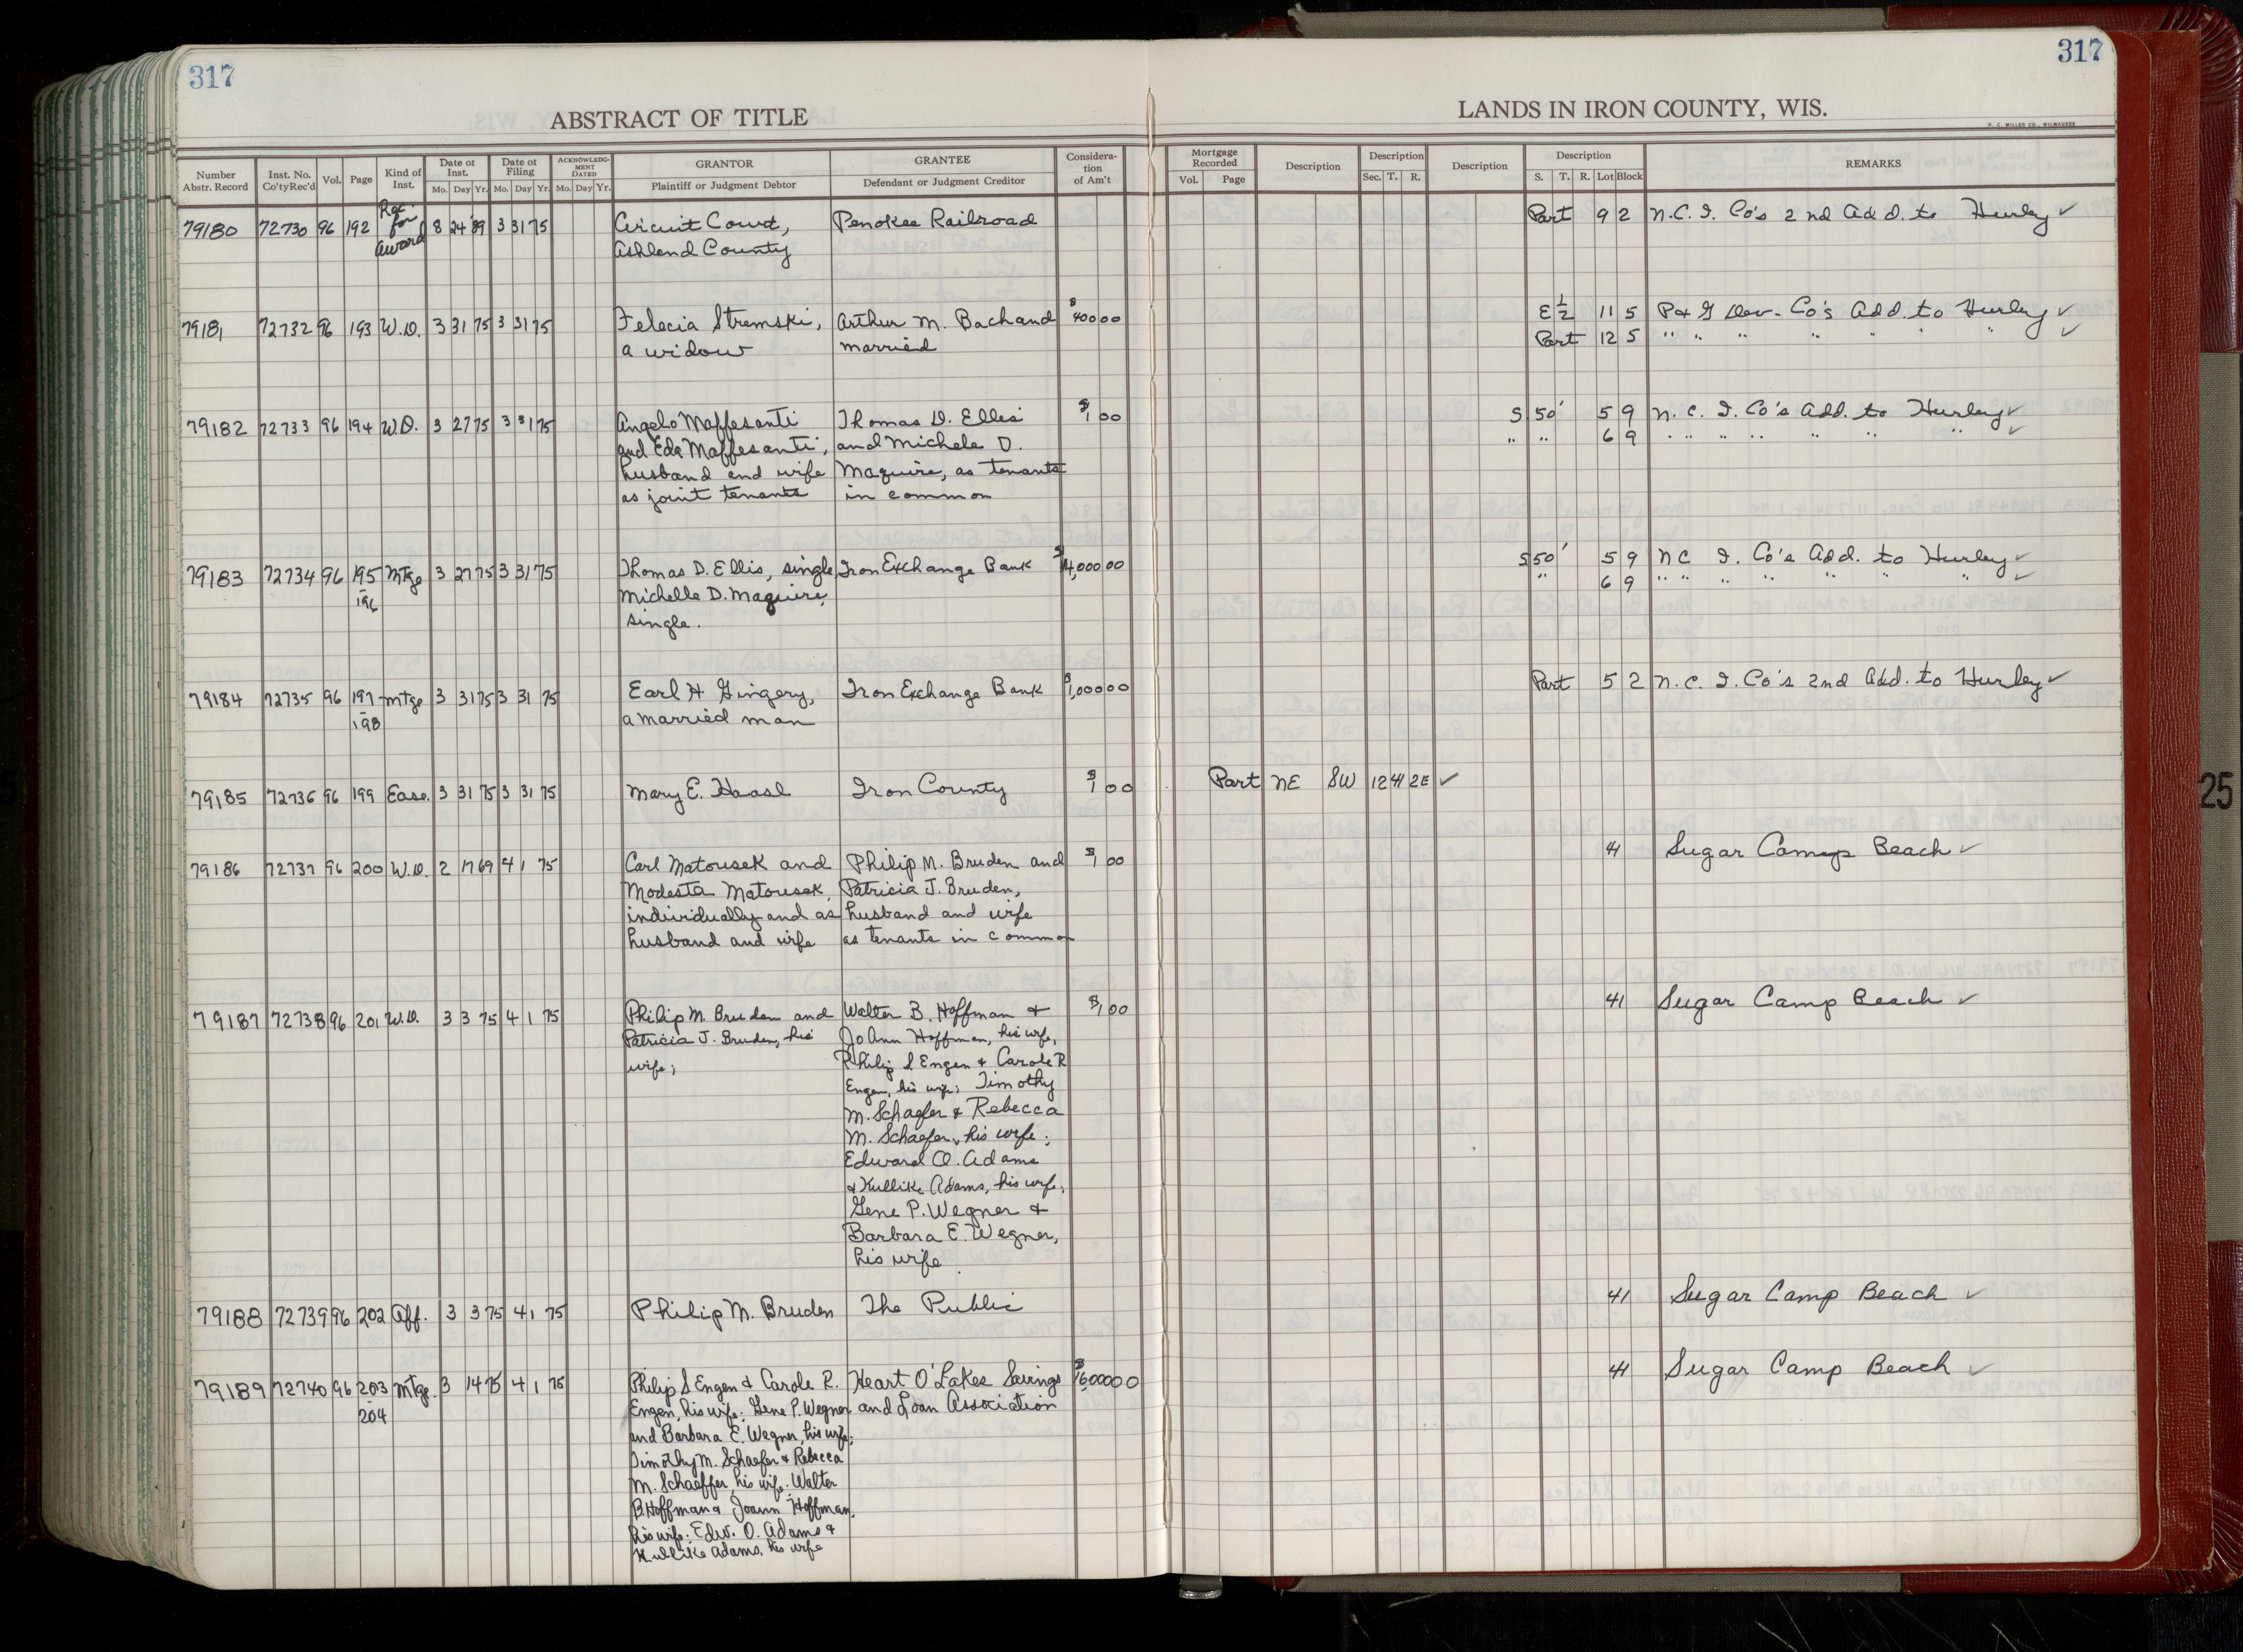 317
317
ABSTRACT OF TITLE
LANDS IN IRON COUNTY, WIS.
H. C. MILLER CO., MILWAUKEE
Number Abstr. Record | Inst. No. Co'ty Rec'd | Vol. | Page | Kind of Inst. | Date of Inst. Mo. Day Yr. | Date of Filing Mo. Day Yr. | ACKNOWLEDGMENT DATED Mo. Day Yr. | GRANTOR Plaintiff or Judgment Debtor | GRANTEE Defendant or Judgment Creditor | Consideration of Am't | Mortgage Recorded Vol. Page | Description | Description Sec. T. R. | Description | Description S. T. R. Lot Block | REMARKS
79180 72730 96 192 Rec. for Award 8 24 '89 3 31 75 Circuit Court, Penokee Railroad Part 9 2 N.C.I. Co's 2nd Add. to Hurley ✓
Ashland County
79181 72732 96 193 W.D. 3 31 75 3 31 75 Felecia Stremski, Arthur M. Bachand $ 400 00 E ½ 11 5 P & G Dev. Co's Add. to Hurley ✓
a widow married Part 12 5 " " " " " " " ✓
79182 72733 96 194 W.D. 3 27 75 3 31 75 Angelo Maffesanti Thomas D. Ellis $1 00 S 50' 5 9 N.C.I. Co's Add. to Hurley ✓
and Eda Maffesanti, and Michele D. " " 6 9 " " " " " " " ✓
husband and wife Maguire, as tenants
as joint tenants in common
79183 72734 96 195 - 196 Mtge 3 27 75 3 31 75 Thomas D. Ellis, single Iron Exchange Bank $14,000 00 S 50' 5 9 NC I. Co's Add. to Hurley ✓
Michelle D. Maguire, " 6 9 " " " " " " " ✓
single.
79184 72735 96 197 - 198 Mtge 3 31 75 3 31 75 Earl H Gingery, Iron Exchange Bank $1,000 00 Part 5 2 N.C.I. Co's 2nd Add. to Hurley ✓
a married man
79185 72736 96 199 Ease. 3 31 75 3 31 75 Mary E. Haasl Iron County $1 00 Part NE SW 12 41 2E ✓
79186 72737 96 200 W.D. 2 17 69 4 1 75 Carl Matousek and Philip M. Bruden and $1 00 41 Sugar Camp Beach ✓
Modesta Matousek, Patricia J. Bruden,
individually and as husband and wife
husband and wife as tenants in common
79187 72738 96 201 W.D. 3 3 75 4 1 75 Philip M. Bruden and Walter B. Hoffman & $1 00 41 Sugar Camp Beach ✓
Patricia J. Bruden, his JoAnn Hoffman, his wife,
wife; Philip S. Engen & Carole R
Engen, his wife; Timothy
M. Schaefer & Rebecca
M. Schaefer, his wife;
Edward O. Adams
& Kullike Adams, his wife;
Gene P. Wegner &
Barbara E. Wegner,
his wife
79188 72739 96 202 Aff. 3 3 75 4 1 75 Philip M. Bruden The Public 41 Sugar Camp Beach ✓
79189 72740 96 203 - 204 Mtge. 3 14 75 4 1 75 Philip S Engen & Carole R. Heart O'Lakes Savings $16,000 00 41 Sugar Camp Beach ✓
Engen, his wife; Gene P. Wegner and Loan Association
and Barbara E. Wegner, his wife;
Timothy M. Schaefer & Rebecca
M. Schaeffer, his wife; Walter
B. Hoffman & Joann Hoffman,
his wife; Edw. O. Adams &
Kullike Adams, his wife
25